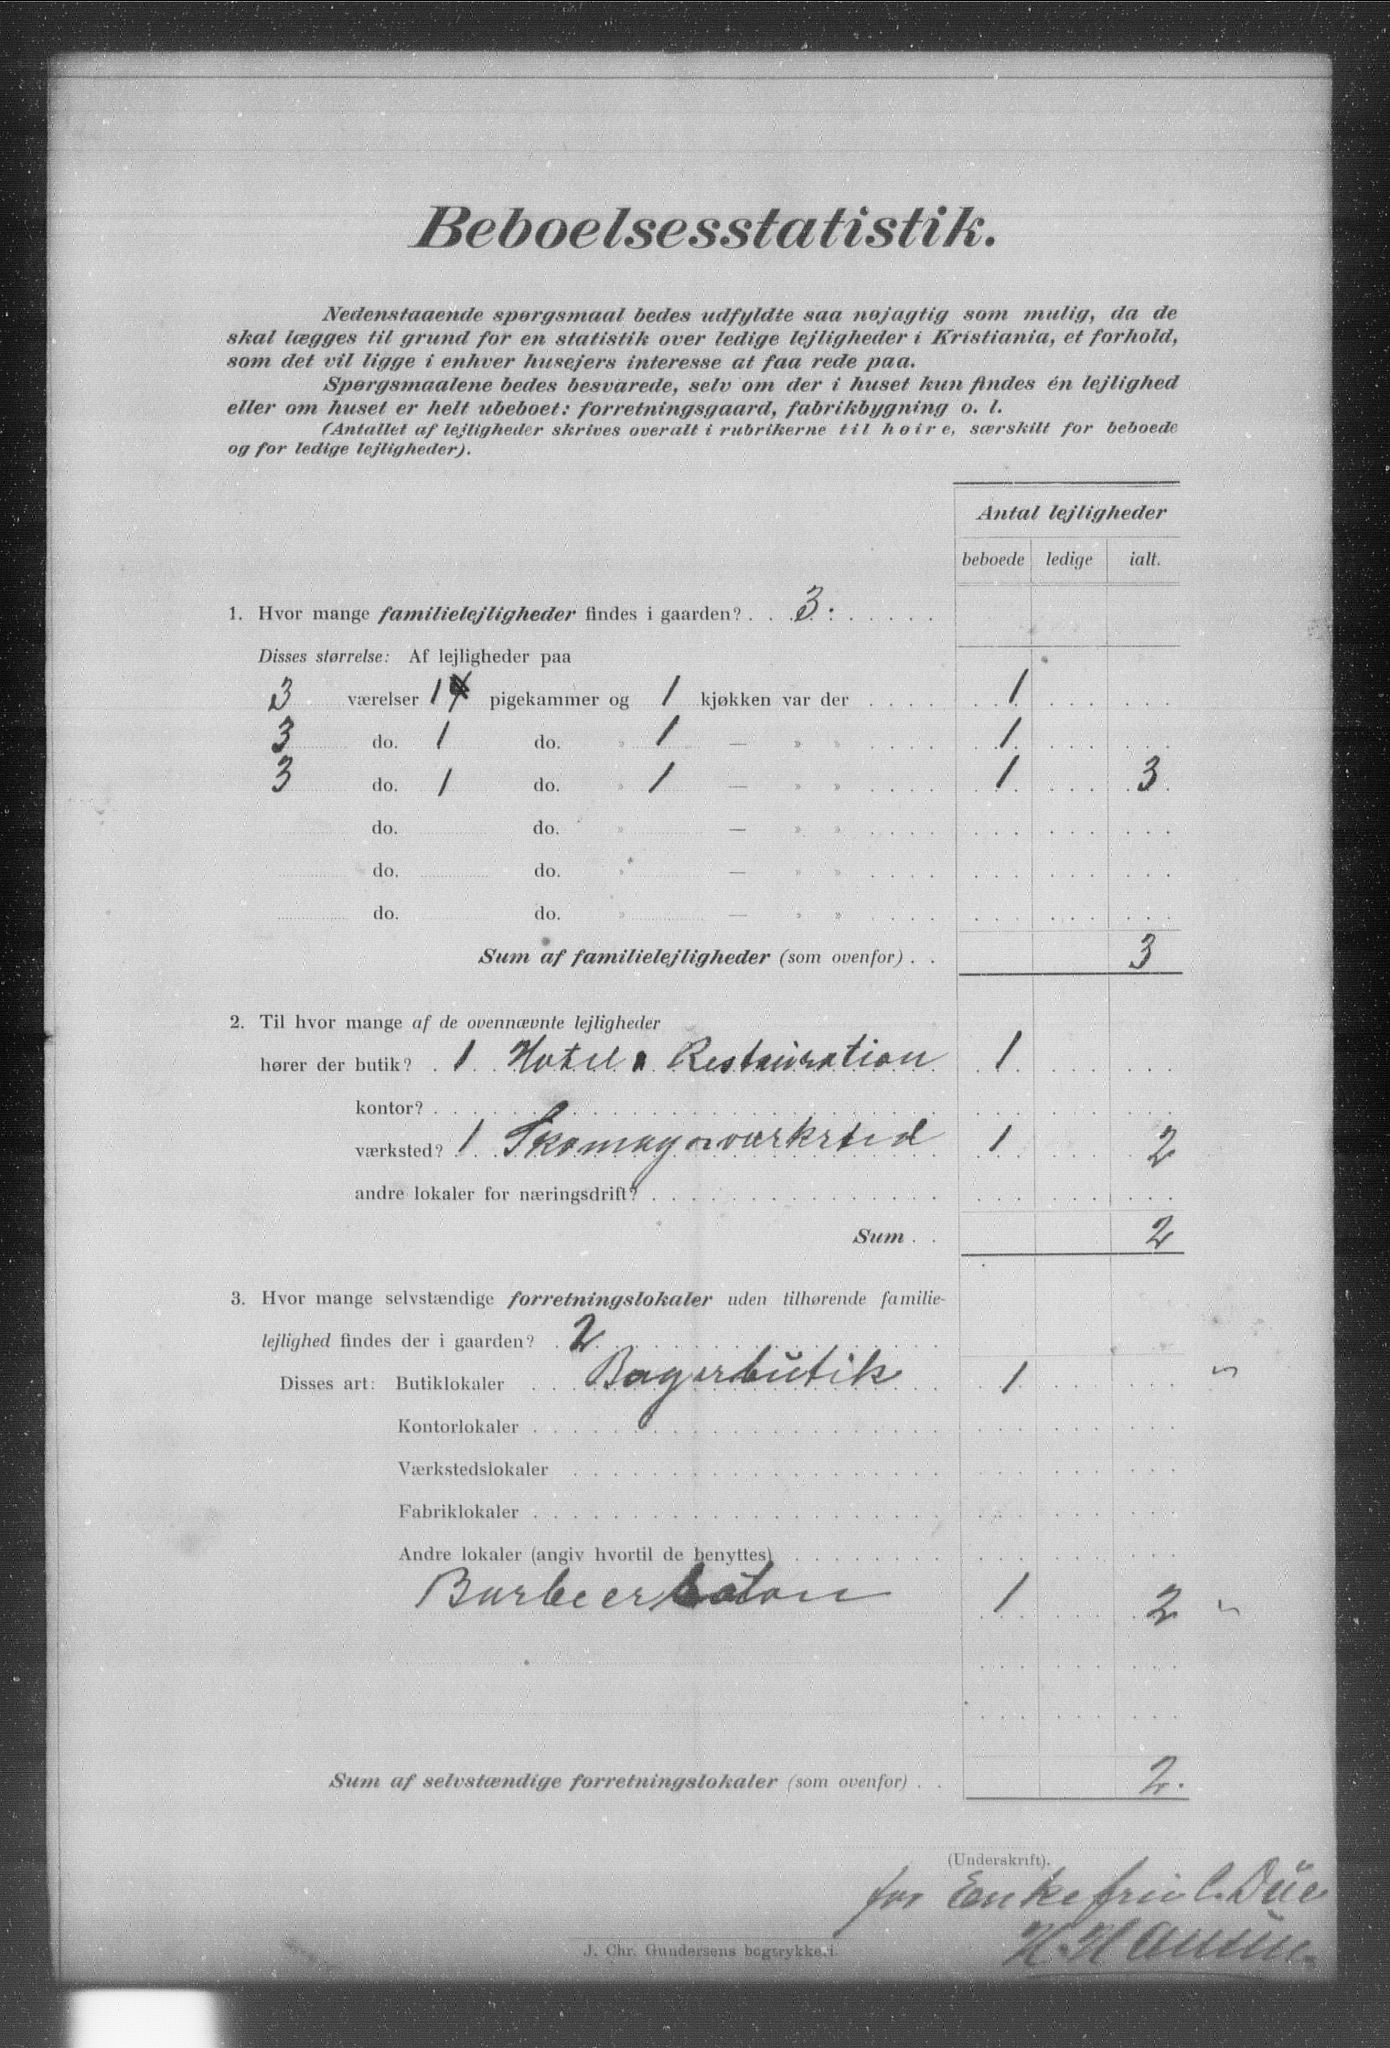 Beboelsesstatistik.
Nedenstaaende spørgsmaal bedes udfyldte saa nøjagtig som mulig, da de
skal lægges til grund for en statistik over ledige lejligheder i Kristiania, et forhold,
som det vil ligge i enhver husejers interesse at faa rede paa.
Spørgsmaalene bedes besvarede, selv om der i huset kun findes én lejlighed
eller om huset er helt ubeboet: forretningsgaard, fabrikbygning o. l.
(Antallet af lejligheder skrives overalt i rubrikerne til høire, særskilt for beboede
og for ledige lejligheder).
Antal lejligheder
beboede ledige ialt.
1. Hvor mange familielejligheder findes i gaarden? 3.
Disses størrelse: Af lejligheder paa
3 værelser 1 pigekammer og 1 kjøkken var der 1
3 do. 1 do. » 1 — » » 1
3 do. 1 do. » 1 — » » 1 3
do. do. » — » »
do. do. » — » »
do. do. » — » »
Sum af familielejligheder (som ovenfor) . . 3
2. Til hvor mange af de ovennævnte lejligheder
hører der butik? 1 Hotel & Restauration 1
kontor?
værksted? 1 Skomagerværksted 1 2
andre lokaler for næringsdrift?
Sum . . 2
3. Hvor mange selvstændige forretningslokaler uden tilhørende familie-
lejlighed findes der i gaarden? 2
Disses art: Butiklokaler Bagerbutik 1
Kontorlokaler
Værkstedslokaler
Fabriklokaler
Andre lokaler (angiv hvortil de benyttes)
1 2
Sum af selvstændige forretningslokaler (som ovenfor) . . 2.
(Underskrift).
for Enkefru C. Düe
H. Hansen.
J. Chr. Gundersens bogtrykkeri.